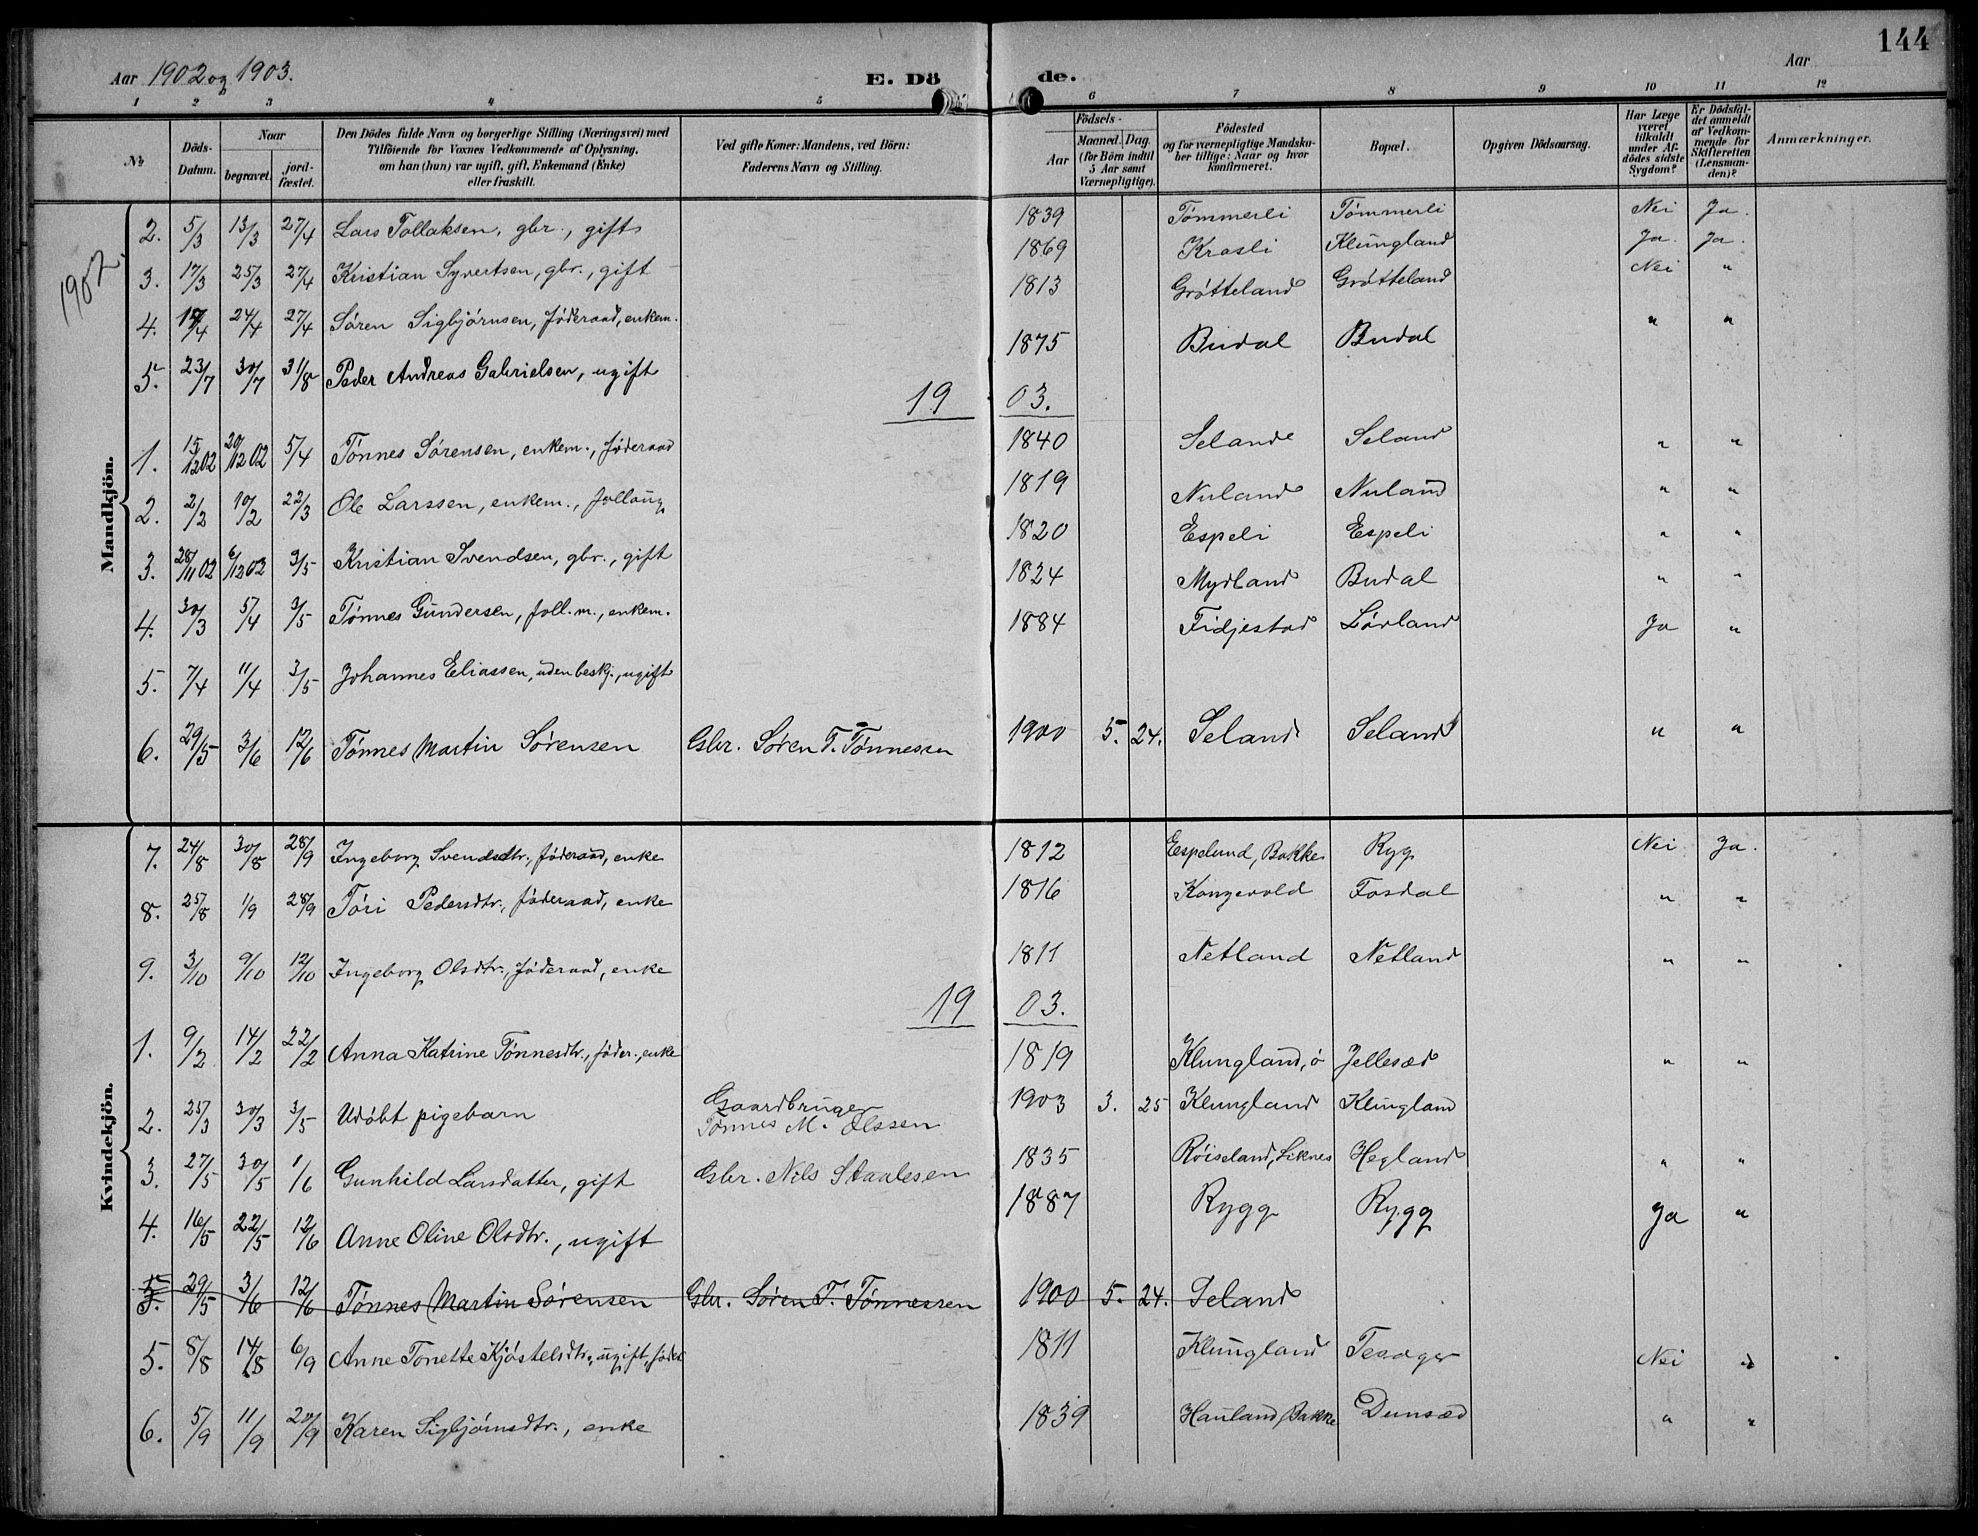 144
Aar 1902 og 1903.
E. Döde.
Aar
1 2 3 4 5 6 7 8 9 10 11 12
No
Döds-Datum.
Naar
begravet.
jordfæstet.
Den Dödes fulde Navn og borgerlige Stilling (Næringsvei) med Tilföiende for Voxnes Vedkommende af Oplysning, om han (hun) var ugift, gift, Enkemand (Enke) eller fraskilt.
Ved gifte Koner: Mandens, ved Börn: Faderens Navn og Stilling.
Födsels-
Aar
Maaned. Dag.
(for Börn indtil 5 Aar samt Værnepligtige).
Födested og for værnepligtige Mandskaber tillige: Naar og hvor konfirmeret.
Bopæl.
Opgiven Dödsaarsag.
Har Læge været tilkaldt under Afdödes sidste Sygdom?
Er Dödsfaldet anmeldt af Vedkommende for Skifteretten (Lensmanden)?
Anmærkninger.
1902.
Mandkjön.
2. 5/3 13/3 27/4 Lars Tollaksen, gbr., gift 1839 Tømmerli Tømmerli Nei Ja.
3. 17/3 25/3 27/4 Kristian Syvertsen, gbr., gift 1869 Krasli Klungland Ja. Ja.
4. 17/4 24/4 27/4 Søren Sigbjørnsen, føderaad, enkem. 1813 Grøtteland Grøtteland Nei "
5. 23/7 30/7 31/8 Peder Andreas Gabrielsen, ugift 1875 Budal Budal " "
1903.
1. 15/12 02 20/12 02 5/4 Tønnes Sørensen, enkem., føderaad 1840 Selande Seland " "
2. 2/2 10/2 22/3 Ole Larssen, enkem., follaug 1819 Nuland Nuland " "
3. 28/11 02 6/12 02 3/5 Kristian Svendsen, gbr., gift 1820 Espeli Espeli " "
4. 30/3 5/4 3/5 Tønnes Gundersen, foll.m., enkem. 1824 Mydland Budal " "
5. 7/4 11/4 3/5 Johannes Eliassen, uden beskj., ugift 1884 Fidjestad Lørland Ja "
6. 29/5 3/6 12/6 Tønnes Martin Sørensen Gbr. Søren T. Tønnessen 1900 5. 24. Seland Seland " "
Kvindekjön.
7. 24/8 30/8 28/9 Ingeborg Svendsdtr., føderaad, enke 1812 Espelund, Bakke Ryg Nei Ja.
8. 25/8 1/9 28/9 Tøri Pedersdtr., føderaad, enke 1816 Kongevold Fosdal " "
9. 3/10 9/10 12/10 Ingeborg Olsdtr., føderaad, enke 1811 Netland Netland " "
1903.
1. 9/2 14/2 22/2 Anna Katrine Tønnesdtr., føder., enke 1819 Klungland, ø Jellesæd " "
2. 25/3 30/3 3/5 Udøbt pigebarn Gaardbruger Tønnes M. Olssen 1903 3. 25 Klungland Klungland
3. 27/5 30/5 1/6 Gunhild Larsdatter, gift Gbr. Nils Staalesen 1835 Røiseland, Liknes Hegland " "
4. 16/5 22/5 12/6 Anne Oline Olsdtr., ugift 1887 Rygg Rygg Ja "
5. 29/5 3/6 12/6 Tønnes Martin Sørensen Gbr. Søren T. Tønnessen 1900 5. 24. Seland
5. 8/8 14/8 6/9 Anne Tonette Kjøstelsdtr., ugift, føder. 1811 Klungland Tesager Nei "
6. 5/9 11/9 20/9 Karen Sigbjørnsdtr., enke 1839 Hauland, Bakke Dunsæd " "